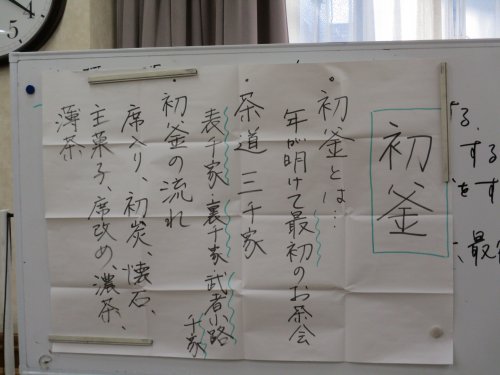 初釜
・初釜とは…
年が明けて最初のお茶会
・茶道 三千家
表千家、裏千家、武者小路
千家
・初釜の流れ
席入り、初炭、懐石、
主菓子、席改め、濃茶、
薄茶
る、
する
をす
最